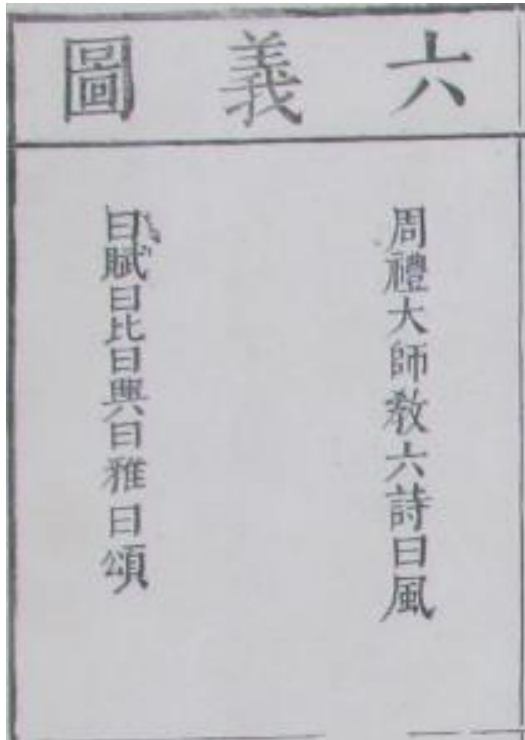 六義圖
周禮大師教六詩曰風
曰賦曰比曰興曰雅曰頌